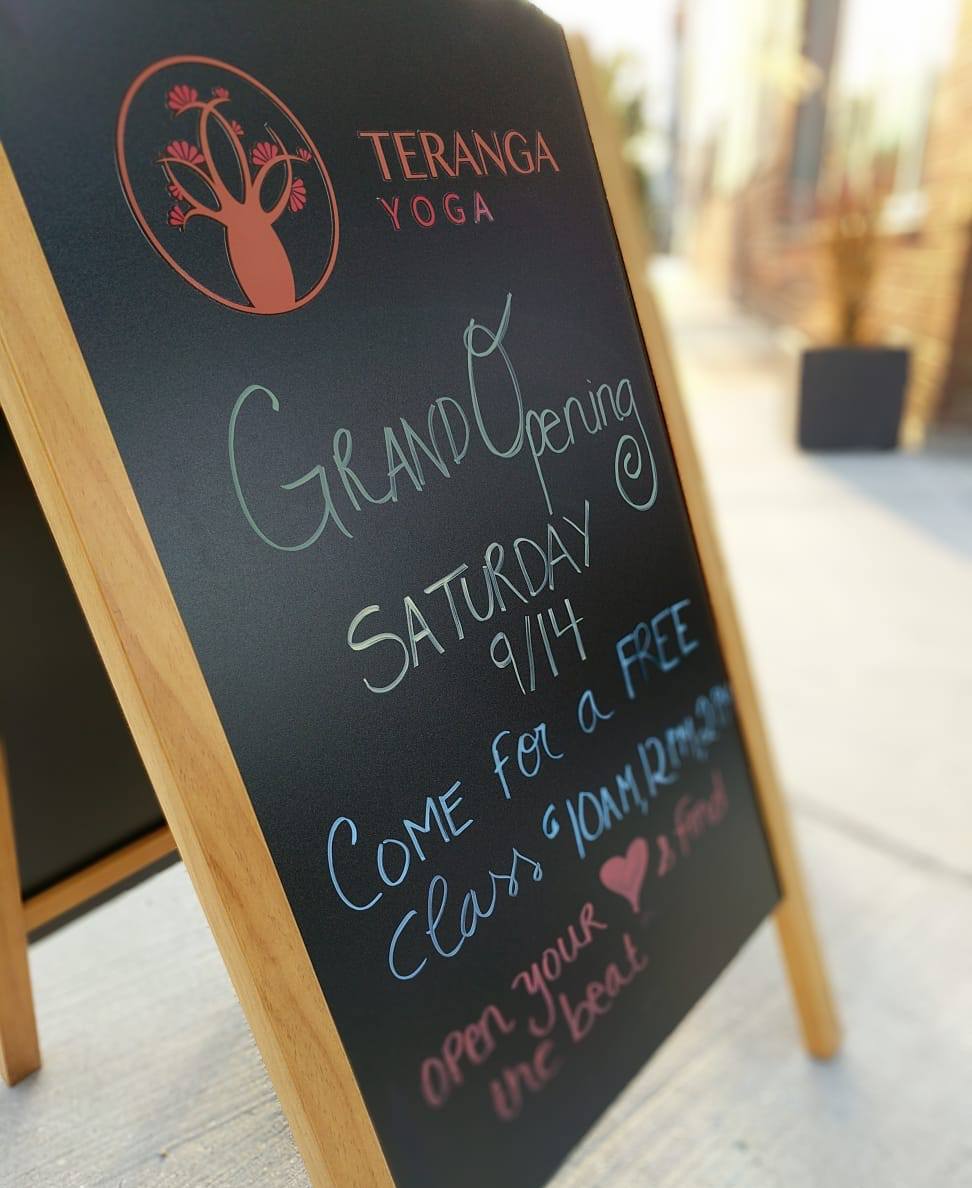 TERANGA
YOGA
GRAND Opening
SATURDAY
9/14
COME FOR a FREE
Class @ 10AM, 12PM, 2PM
OPEN your ♥ & find
the beat